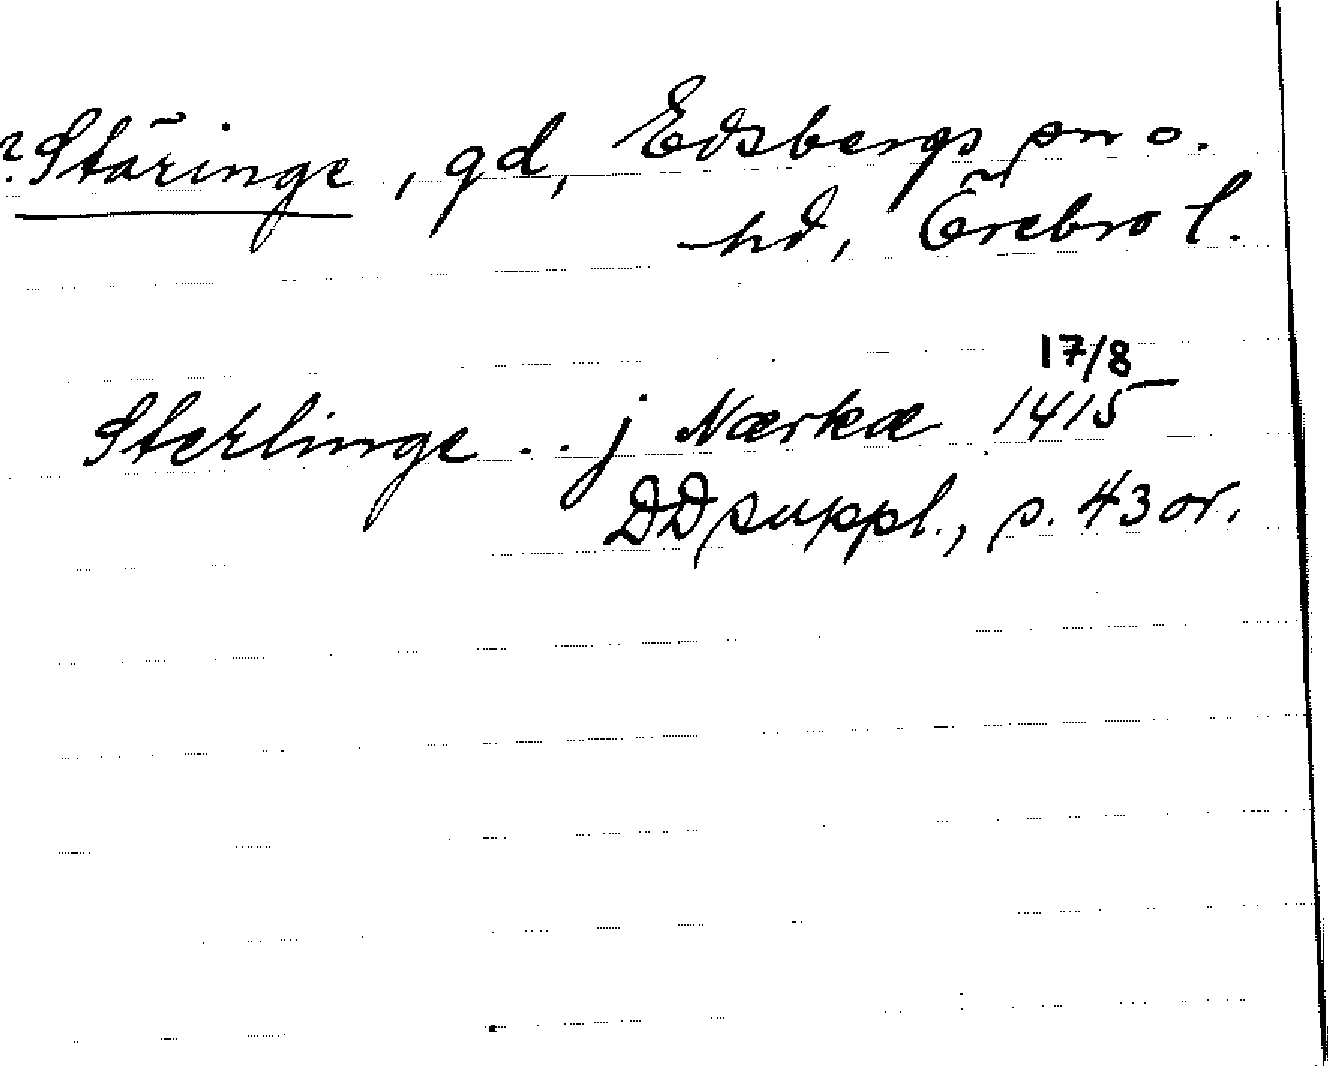 ? Stäringe, gd, Edsbergs sn o.
hd, Örebro l.
17/8
Sterlinge . . j Nærkæ 1415
DD suppl., s. 43 or.